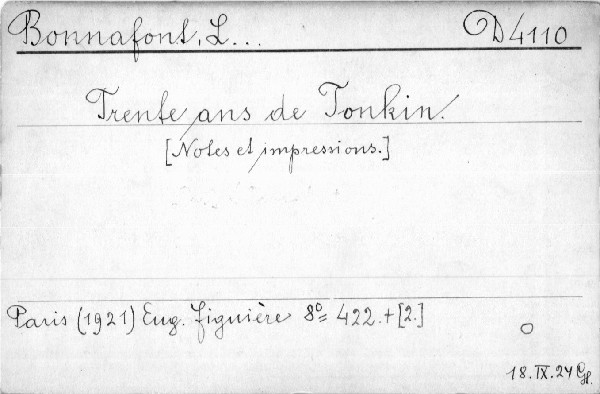 Bonnafont, L... D4110
Trente ans de Tonkin.
[Notes et impressions.]
Paris (1921) Eug. Figuière 8º= 422.+[2.]
18.IX.24